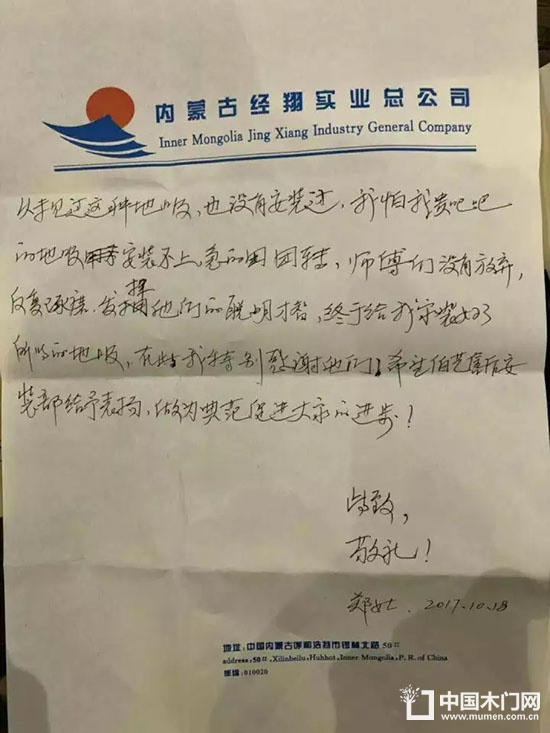 内蒙古经翔实业总公司
Inner Mongolia Jing Xiang Industry General Company
从未见过这种地板，也没有安装过，我怕我贵吧吧
的地板安装不上，急的团团转，师傅们没有放弃，
反复琢磨，发挥他们的聪明才智，终于给我安装好
所有的地板，在此我特别感谢他们！希望伯艺售后安
装部给予表扬，做为典范促进大家的进步！
此致，
敬礼！
郑女士 2017.10.18
地址：中国内蒙古呼和浩特市锡林北路50#
address：50#，Xilinbeilu，Huhhot，Inner Mongolia，P. R. of China
邮编：010020
中国木门网
www.mumen.com.cn